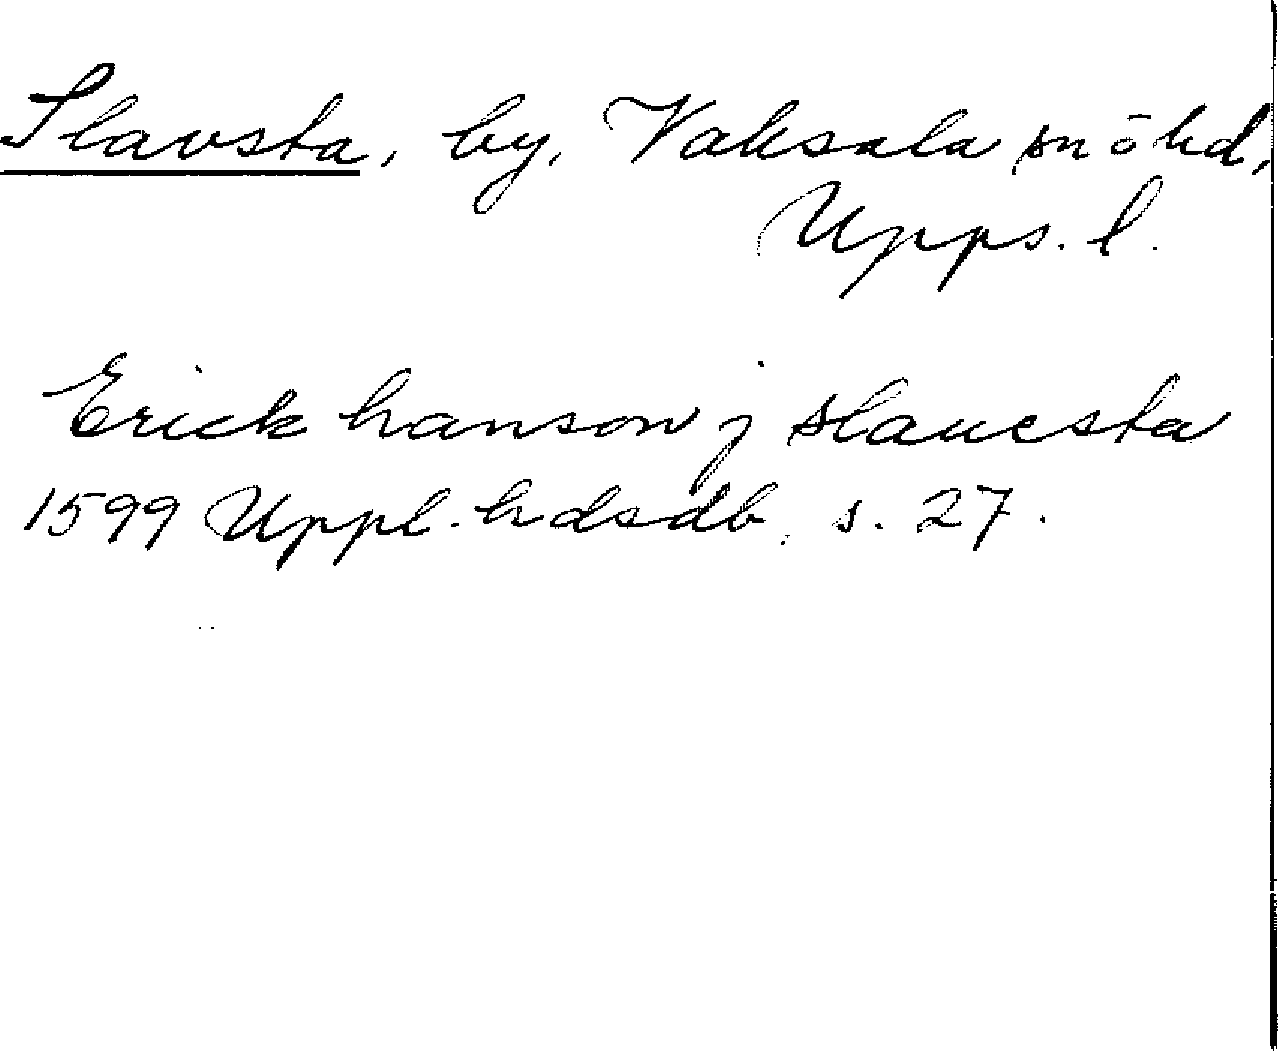 Slavsta, by, Vaksala sn o hd,
Upps. l.
Erick hanson j slauesta
1599 Uppl. hdsdb, s. 27.